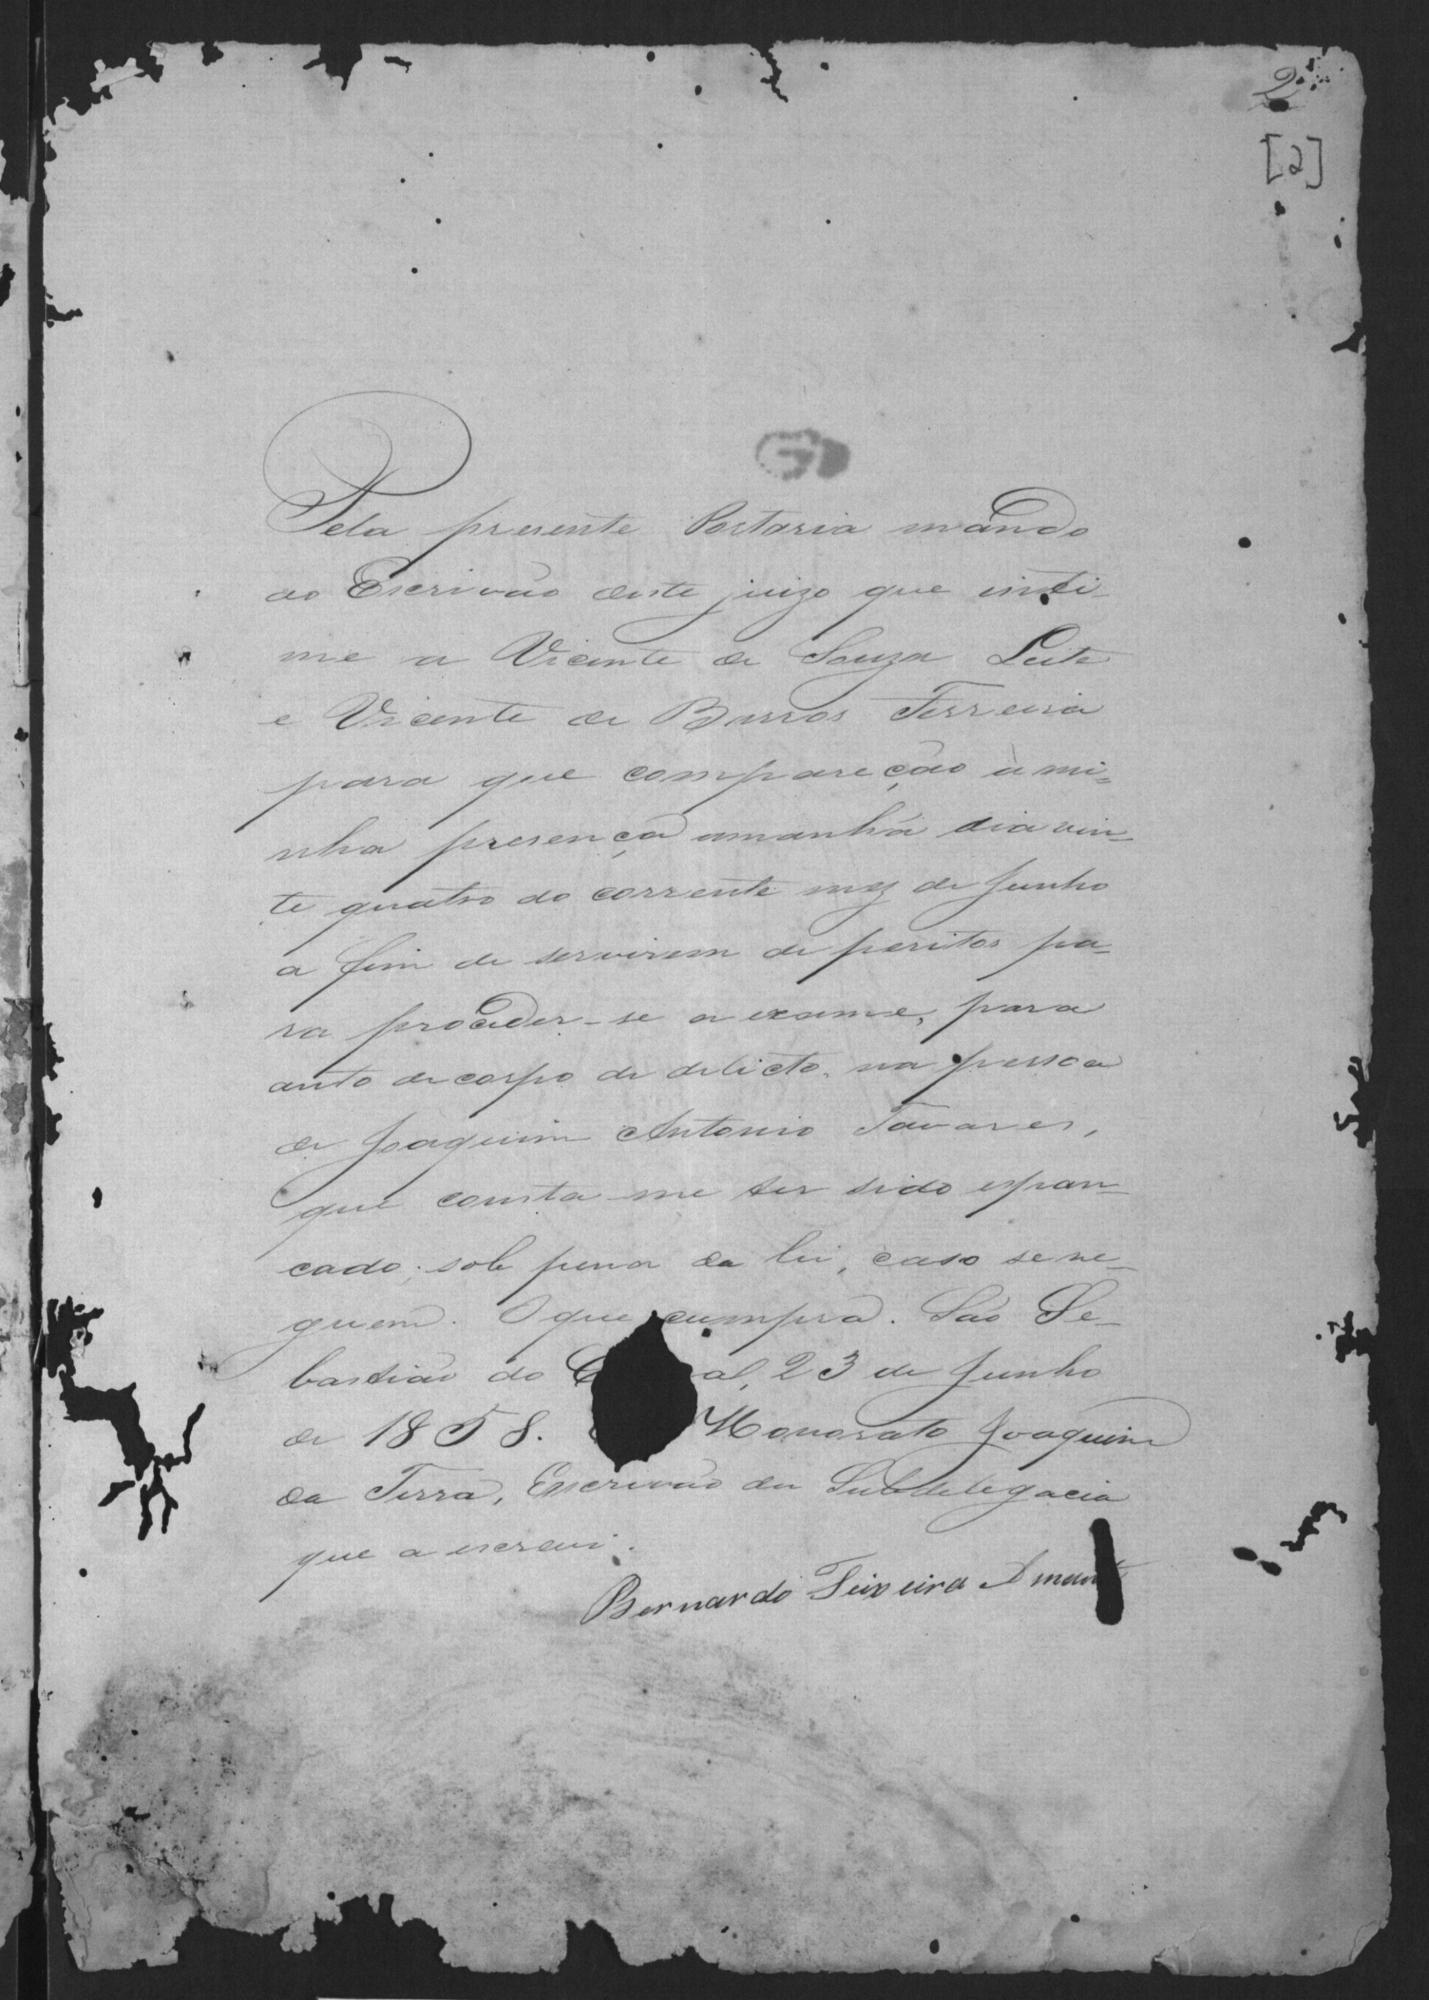 2
[2]
Pela presente Portaria mando
ao Escrivão deste juizo que inti-
me a Vicente de Souza Leite
e Vicente de Barros Ferreira
para que compareção à mi=
nha presença amanhã dia vin=
te quatro do corrente mez de Junho
a fim de servirem de peritos pa=
ra proceder-se a exame, para
auto de corpo de delicto, na pessoa
de Joaquim Antonio Tavares,
que consta-me ter sido espan-
cado; sob pena da lei, caso se ne-
guem. O que cumpra. São Se-
bastião do C al, 23 de Junho
de 1858. Honorato Joaquim
da Terra, Escrivão da Subdelegacia
que a escrevi.
Bernardo Teixeira Amant